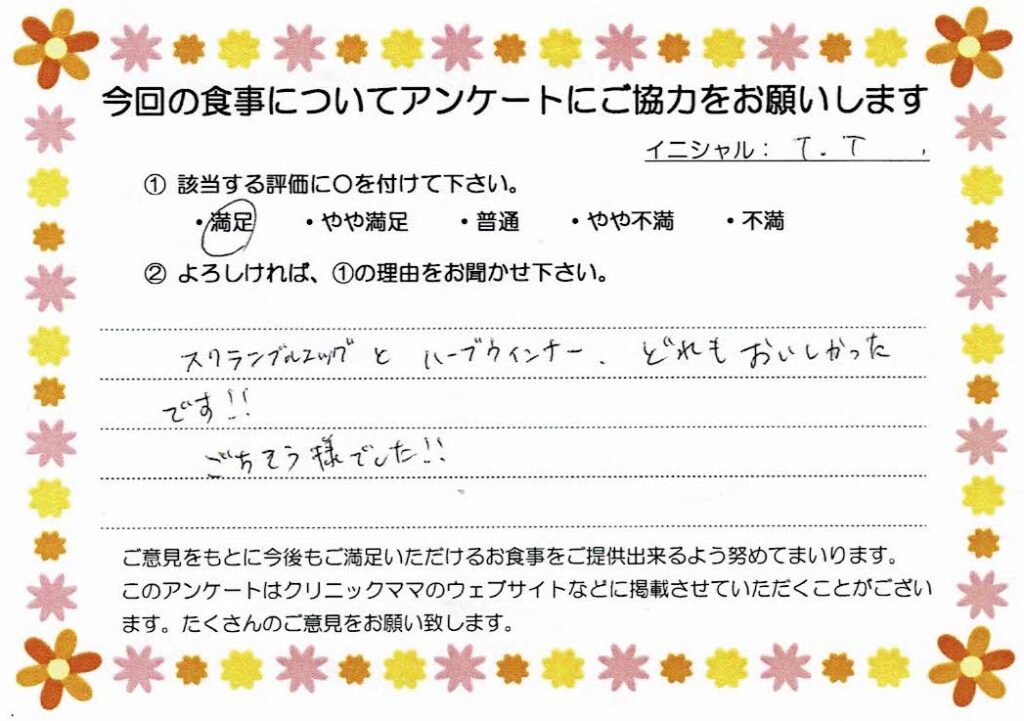 今回の食事についてアンケートにご協力をお願いします
イニシャル： T.T
① 該当する評価に〇を付けて下さい。
・満足 ・やや満足 ・普通 ・やや不満 ・不満
② よろしければ、①の理由をお聞かせ下さい。
スクランブルエッグと ハーブウィンナー、どれもおいしかった
です!!
ごちそう様でした!!
ご意見をもとに今後もご満足いただけるお食事をご提供出来るよう努めてまいります。
このアンケートはクリニックママのウェブサイトなどに掲載させていただくことがござい
ます。たくさんのご意見をお願い致します。